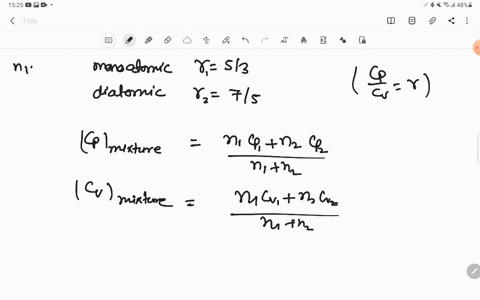 15:25 48%
Title
n₁. monoatomic r₁ = 5/3 (Cp/Cv = r)
diatomic r₂ = 7/5
(Cp)mixture = (n₁ Cp₁ + n₂ Cp₂)/(n₁ + n₂)
(Cv)mixture = (n₁ Cv₁ + n₂ Cv₂)/(n₁ + n₂)